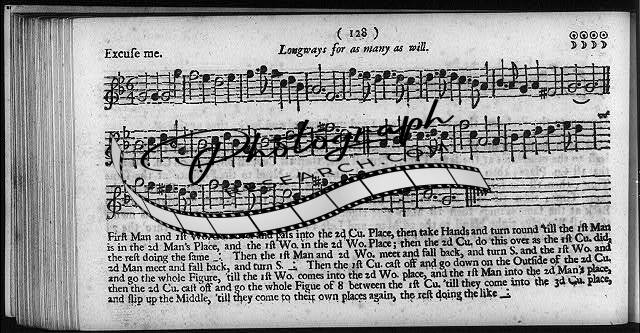 ( 128 )
Excuse me.
Longways for as many as will.
Photograph
EARCH.COM
First Man and 1st Wo. and pass into the 2d Cu. Place, then take Hands and turn round 'till the 1st Man
is in the 2d Man's Place, and the 1st Wo. in the 2d Wo. Place; then the 2d Cu. do this over as the 1st Cu. did,
the rest doing the same. Then the 1st Man and 2d Wo. meet and fall back, and turn S. and the 1st Wo. and
2d Man meet and fall back, and turn S. Then the 1st Cu. cast off and go down on the Outside of the 2d Cu.
and go the whole Figure, 'till the 1st Wo. comes into the 2d Wo. place, and the 1st Man into the 2d Man's place,
then the 2d Cu. cast off and go the whole Figue of 8 between the 1st Cu. 'till they come into the 3d Cu. place,
and slip up the Middle, 'till they come to their own places again, the rest doing the like